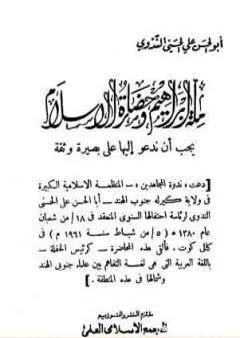 أبو الحسن علي الحسني الندوي
ملة إبراهيم وحضارة الإسلام
يجب أن ندعو إليها على بصيرة وثقة
[ دعت « ندوة المجاهدين » – المنظمة الاسلامية الكبيرة
في ولاية كيرله جنوب الهند – أبا الحسن علي الحسني
الندوي لرئاسة احتفالها السنوي المنعقد في ١٨/ من شعبان
عام ١٣٨٠ هـ ( ٥/ من شباط سنة ١٩٦١ م ) في
كلي كوت ، فألقى هذه المحاضرة – كرئيس الحفلة –
باللغة العربية التي هي لغة التفاهم بين علماء جنوبي الهند
وشمالها في هذه المنطقة . ]
المجمع الاسلامي العلمي